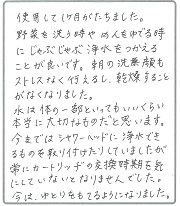 使用して1ヶ月がたちました。
野菜を洗う時やめんをゆでる時
にじゃぶじゃぶ浄水をつかえる
ことが良いです。朝の洗車顔も
ストレスなく行えるし、乾燥すること
がなくなりました。
水は体の一部といってもいいくらい
本当に大切なものだと思います。
今まではシャワーヘッドに浄水でき
るものを取り付けたりしていましたが
常にカートリッジの交換時期を気
にしていないとなりませんでした。
今は、ゆとりをもてるようになりました。